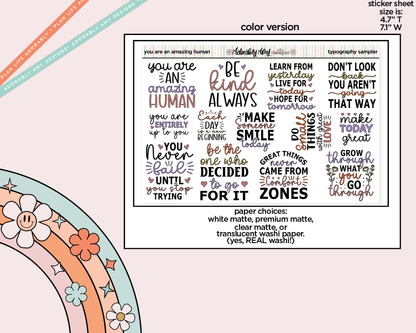 sticker sheet
size is:
4.7" T
7.1" W
color version
PLAN LIFE ADORABLY! PLAN LIFE ADORABLY
ADORABLY AMY DESIGNS! ADORABLY AMY DESIGNS!
you are an amazing human
Adorably Amy
typography sampler
you are
AN
amazing
HUMAN
BE
kind
ALWAYS
LEARN FROM
yesterday
LIVE FOR
today
HOPE FOR
tomorrow
DON'T LOOK
back
YOU AREN'T
going
THAT WAY
you are
ENTIRELY
up to you
Each
DAY
is a new
BEGINNING
MAKE
someone
SMILE
today
DO
small
THINGS
with great
LOVE
make
TODAY
great
YOU
Never
fail
UNTIL
you stop
TRYING
be the
one who
DECIDED
to go
FOR IT
GREAT THINGS
never
CAME FROM
Comfort
ZONES
GROW
through
WHAT
you GO
through
paper choices:
white matte, premium matte,
clear matte, or
translucent washi paper.
(yes, REAL washi!)